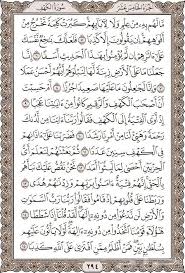 الجزء الخامس عشر سورة الكهف
مَّا لَهُم بِهِۦ مِنْ عِلْمٍ وَلَا لِءَابَآئِهِمْ كَبُرَتْ كَلِمَةً تَخْرُجُ مِنْ
أَفْوَٰهِهِمْ إِن يَقُولُونَ إِلَّا كَذِبًا ٥ فَلَعَلَّكَ بَٰخِعٌ نَّفْسَكَ
عَلَىٰٓ ءَاثَٰرِهِمْ إِن لَّمْ يُؤْمِنُوا۟ بِهَٰذَا ٱلْحَدِيثِ أَسَفًا ٦ إِنَّا
جَعَلْنَا مَا عَلَى ٱلْأَرْضِ زِينَةً لَّهَا لِنَبْلُوَهُمْ أَيُّهُمْ أَحْسَنُ عَمَلًا
٧ وَإِنَّا لَجَٰعِلُونَ مَا عَلَيْهَا صَعِيدًا جُرُزًا ٨ أَمْ حَسِبْتَ
أَنَّ أَصْحَٰبَ ٱلْكَهْفِ وَٱلرَّقِيمِ كَانُوا۟ مِنْ ءَايَٰتِنَا عَجَبًا ٩
إِذْ أَوَى ٱلْفِتْيَةُ إِلَى ٱلْكَهْفِ فَقَالُوا۟ رَبَّنَآ ءَاتِنَا مِن لَّدُنكَ رَحْمَةً
وَهَيِّئْ لَنَا مِنْ أَمْرِنَا رَشَدًا ١٠ فَضَرَبْنَا عَلَىٰٓ ءَاذَانِهِمْ
فِى ٱلْكَهْفِ سِنِينَ عَدَدًا ١١ ثُمَّ بَعَثْنَٰهُمْ لِنَعْلَمَ أَىُّ
ٱلْحِزْبَيْنِ أَحْصَىٰ لِمَا لَبِثُوٓا۟ أَمَدًا ١٢ نَّحْنُ نَقُصُّ عَلَيْكَ نَبَأَهُم
بِٱلْحَقِّ إِنَّهُمْ فِتْيَةٌ ءَامَنُوا۟ بِرَبِّهِمْ وَزِدْنَٰهُمْ هُدًى ١٣
وَرَبَطْنَا عَلَىٰ قُلُوبِهِمْ إِذْ قَامُوا۟ فَقَالُوا۟ رَبُّنَا رَبُّ ٱلسَّمَٰوَٰتِ
وَٱلْأَرْضِ لَن نَّدْعُوَا۟ مِن دُونِهِۦٓ إِلَٰهًا لَّقَدْ قُلْنَآ إِذًا شَطَطًا
١٤ هَٰٓؤُلَآءِ قَوْمُنَا ٱتَّخَذُوا۟ مِن دُونِهِۦٓ ءَالِهَةً لَّوْلَا يَأْتُونَ عَلَيْهِم
بِسُلْطَٰنٍۭ بَيِّنٍ فَمَنْ أَظْلَمُ مِمَّنِ ٱفْتَرَىٰ عَلَى ٱللَّهِ كَذِبًا ١٥
٢٩٤